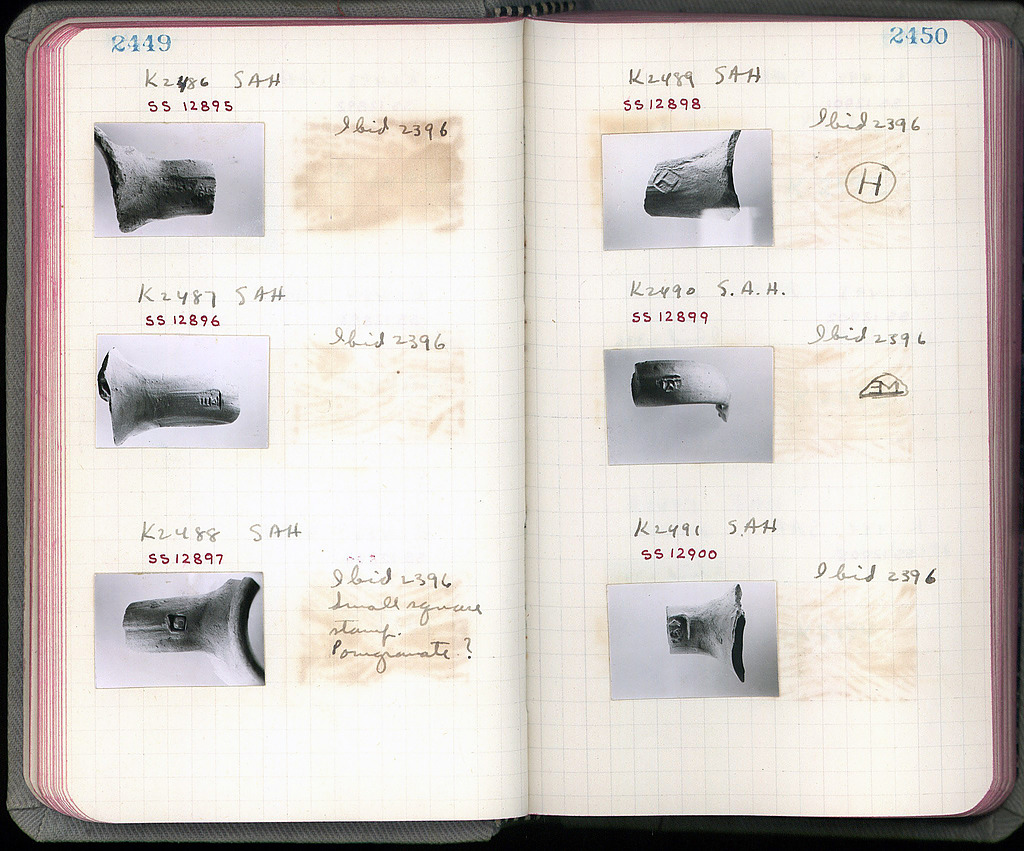 2449
K2486 SAH
SS 12895
Ibid 2396
K2487 SAH
SS 12896
Ibid 2396
K2488 SAH
SS 12897
Ibid 2396
Small square
stamp.
Pomegranate ?
2450
K2489 SAH
SS 12898
Ibid 2396
H
K2490 S.A.H.
SS 12899
Ibid 2396
K2491 SAH
SS 12900
Ibid 2396